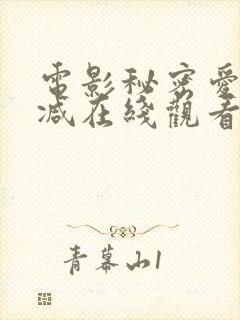 電影秘密愛
减在綫觀看
青幕山1